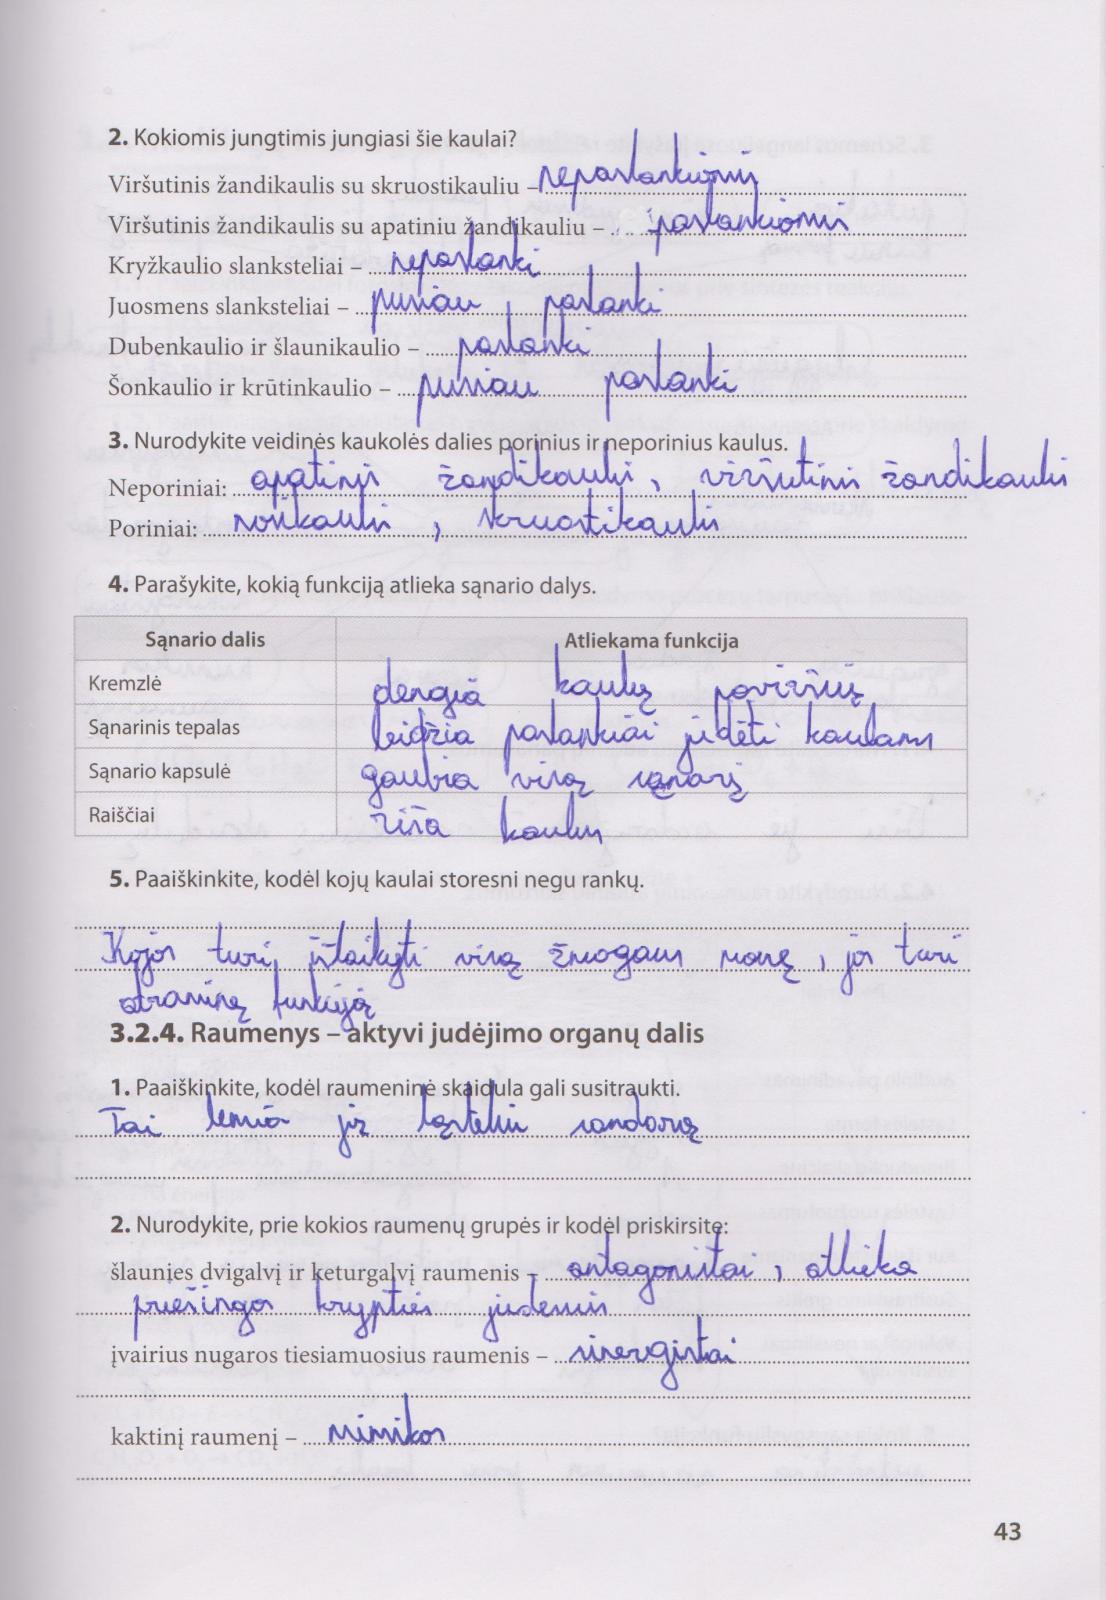 2. Kokiomis jungtimis jungiasi šie kaulai?
Viršutinis žandikaulis su skruostikauliu – nepaslankiomis
Viršutinis žandikaulis su apatiniu žandikauliu – paslankiomis
Kryžkaulio slanksteliai – nepaslanki
Juosmens slanksteliai – pusiau paslanki
Dubenkaulio ir šlaunikaulio – paslanki
Šonkaulio ir krūtinkaulio – pusiau paslanki
3. Nurodykite veidinės kaukolės dalies porinius ir neporinius kaulus.
Neporiniai: apatinis žandikaulis, viršutinis žandikaulis
Poriniai: nosikaulis, skruostikaulis
4. Parašykite, kokią funkciją atlieka sąnario dalys.
Sąnario dalis Atliekama funkcija
Kremzlė dengia kaulų paviršių
Sąnarinis tepalas leidžia paslankiai judėti kaulams
Sąnario kapsulė gaubia visą sąnarį
Raiščiai riša kaulus
5. Paaiškinkite, kodėl kojų kaulai storesni negu rankų.
Kojos turi išlaikyti visą žmogaus masę, jos turi
atraminę funkciją
3.2.4. Raumenys – aktyvi judėjimo organų dalis
1. Paaiškinkite, kodėl raumeninė skaidula gali susitraukti.
Tai lemia jų ląstelių sandara
2. Nurodykite, prie kokios raumenų grupės ir kodėl priskirsite:
šlaunies dvigalvį ir keturgalvį raumenis – antagonistai, atlieka
priešingos krypties judesius
įvairius nugaros tiesiamuosius raumenis – sinergistai
kaktinį raumenį – mimikos
43